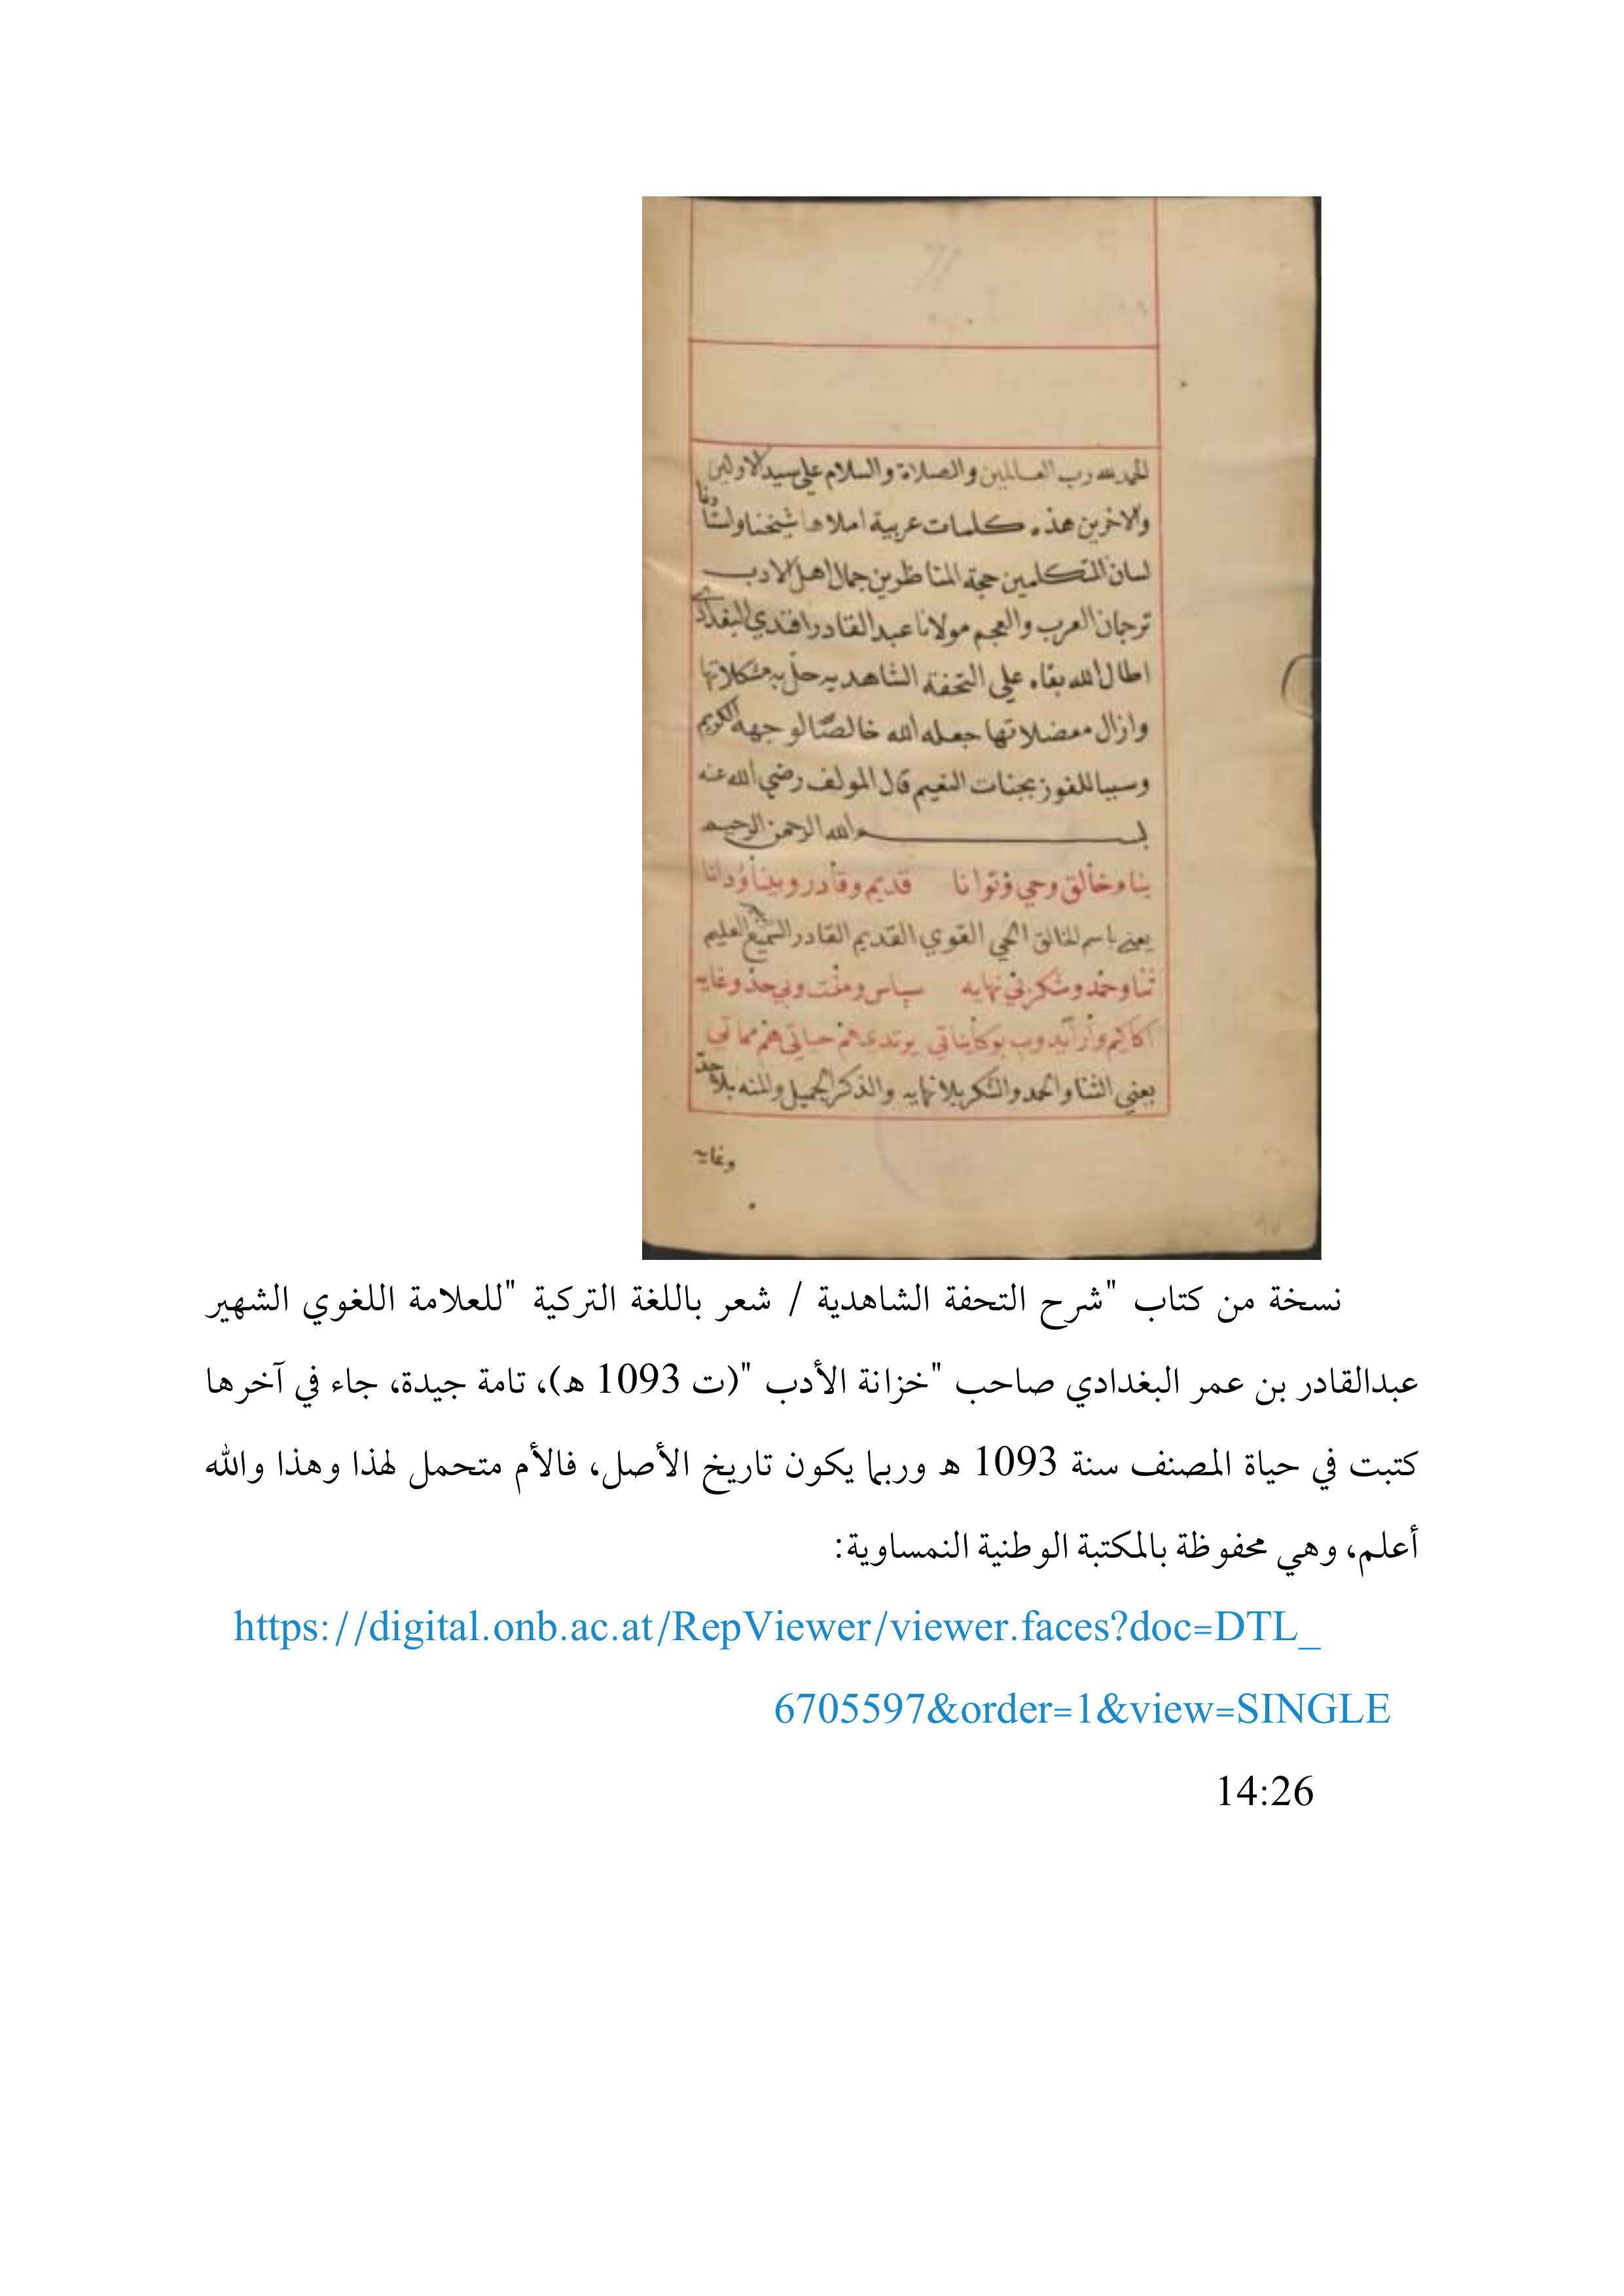 الحمد لله رب العالمين والصلاة والسلام علي سيد الاولين
والاخرين هذه كلمات عربية املاها شيخنا واستاذنا
لسان المتكلمين حجة المناظرين جمال اهل الادب
ترجمان العرب والعجم مولانا عبد القادر افندي البغدادي
اطال الله بقاه علي التحفة الشاهديه حل به مشكلاتها
وازال معضلاتها جعله الله خالصًا لوجهه الكريم
وسببا للفوز بجنات النعيم قال المولف رضي الله عنه
بسم الله الرحمن الرحيم
خالق وحي وتوانا قديم وقادر وبينا ودانا
يعني باسم الخالق الحي القوي القديم القادر العليم
ثنا وحمد وشكر بي نهايه سپاس ومنت وبي حد وغايه
حياتي هم مماتي
يعني الثنا والحمد والشكر بلا نهايه والذكر الجميل والمنه بلا حد
وغايه
نسخة من كتاب "شرح التحفة الشاهدية / شعر باللغة التركية "للعلامة اللغوي الشهير
عبدالقادر بن عمر البغدادي صاحب "خزانة الأدب "(ت 1093 هـ)، تامة جيدة، جاء في آخرها
كتبت في حياة المصنف سنة 1093 هـ وربما يكون تاريخ الأصل، فالأم متحمل لهذا وهذا والله
أعلم، وهي محفوظة بالمكتبة الوطنية النمساوية:
https://digital.onb.ac.at/RepViewer/viewer.faces?doc=DTL_
6705597&order=1&view=SINGLE
14:26